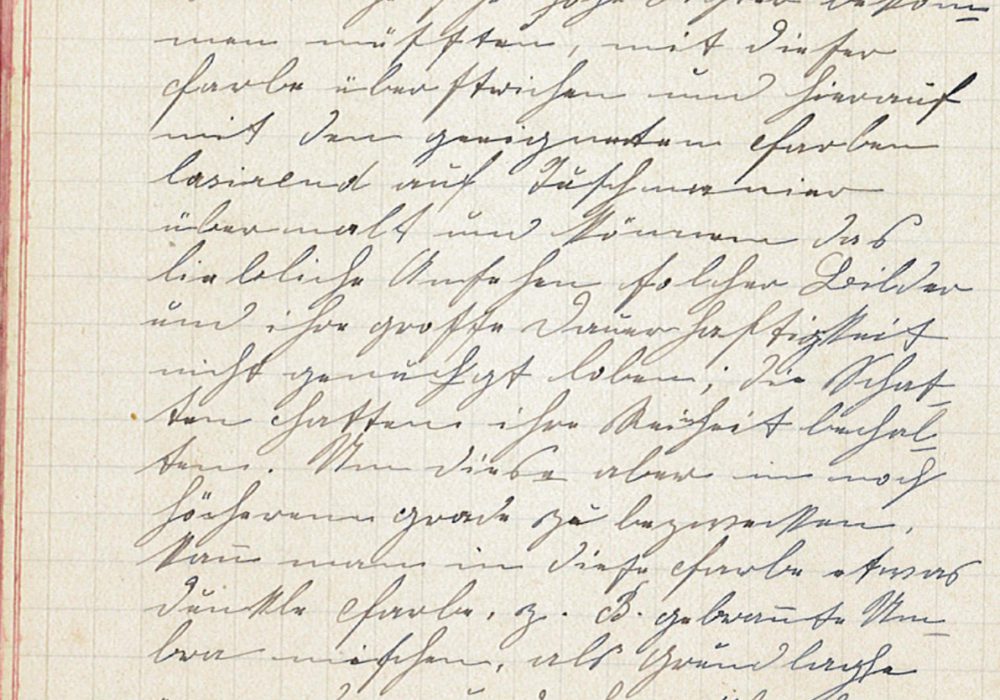 hohe Lichter bekom-
men müssten, mit dieser
farbe überstrichen und hierauf
mit den geeigneten farben
lasirend auf Tuschmanier
übermalt und können das
liebliche Ansehen solcher Bilder
und ihre grosse Dauerhaftigkeit
nicht genug loben; die Schat-
ten hatten ihre Weichheit behal-
ten. Um diese aber in noch
höcherem grade zu bezwecken,
kann man in diese farbe etwas
dunkle farbe, z. B. gebrannte Um-
bra mischen, als Grundlaghe